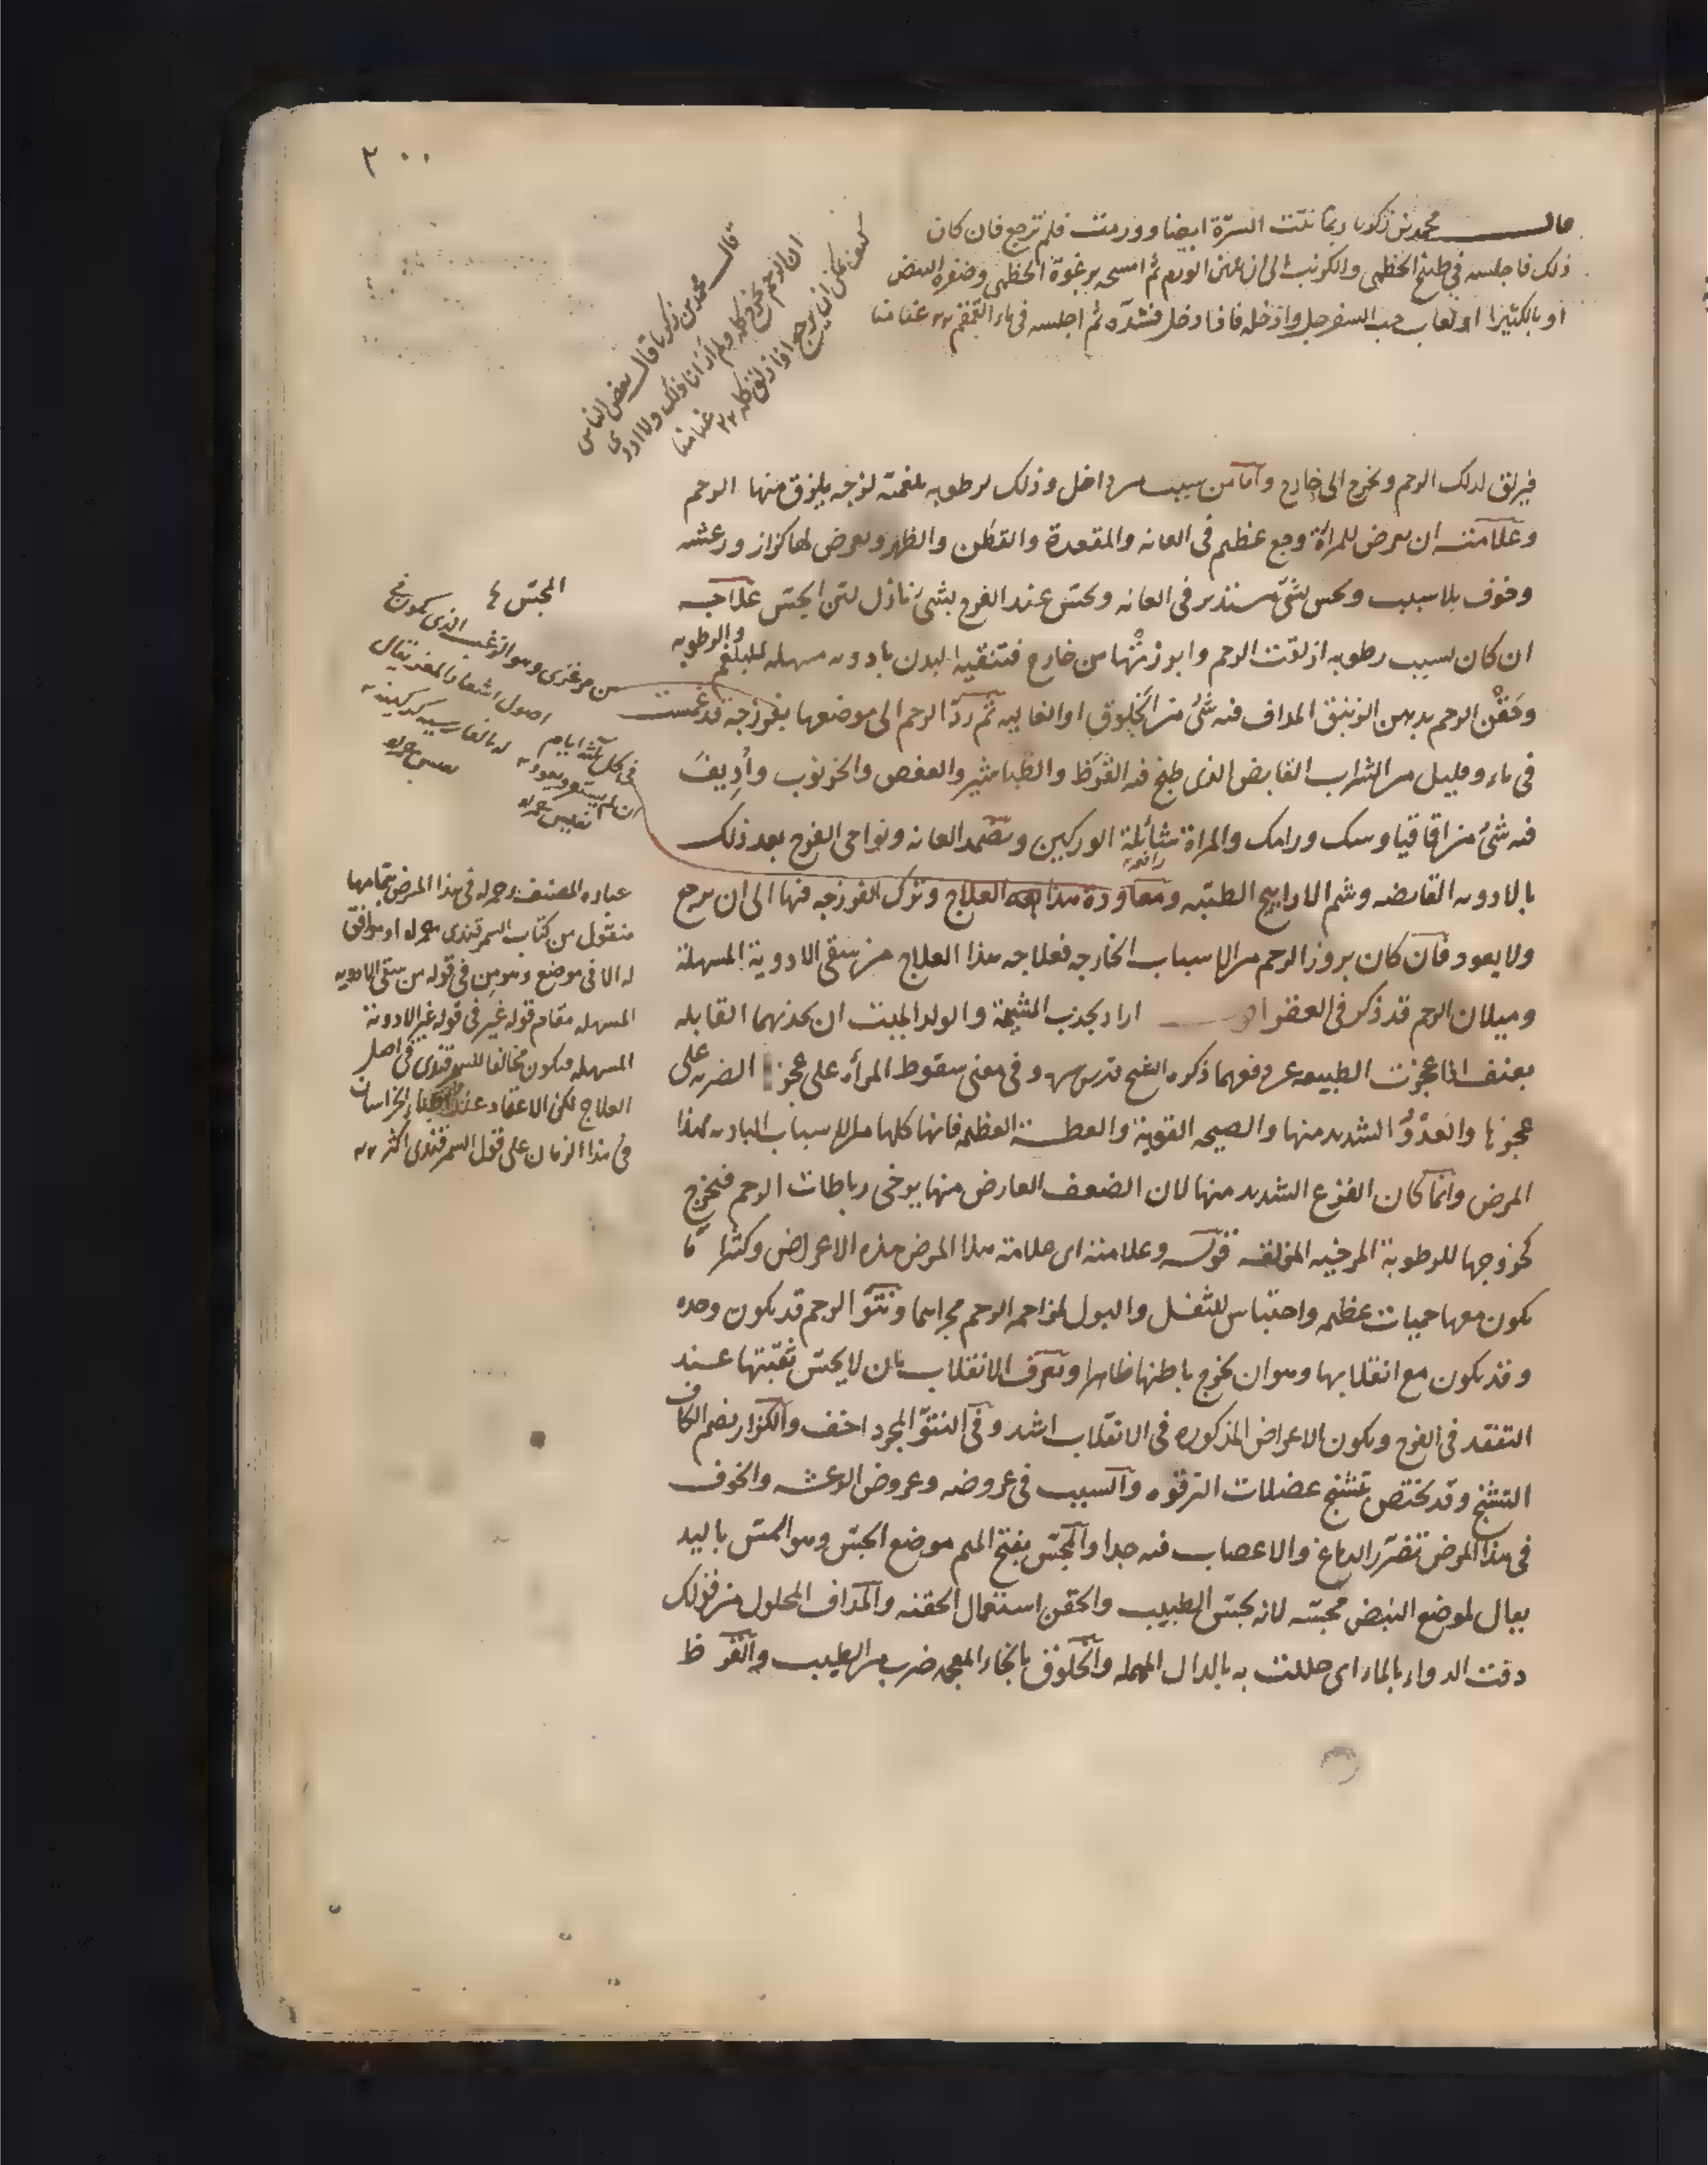 ٣٠٠
قال محمد بن زكريا ربما نتت السرة ايضا وورمت فلم ترجع فان كان
ذلك فاجلسه في طبيخ الخطمي والكرنب الى ان يلين الورم ثم امسحه برغوة الخطمي وصفرة البيض
او بالكثيرا او لعاب حب السفرجل وادخله فاذا دخل فشده ثم اجلسه في ماء القمقم
قال محمد بن زكريا قال بعض الناس
ان الرحم يخرج كله ولم أر انا ذلك ولا ادري
كيف يمكن ان يرجع اذا زلق كله
فيزلق لذلك الرحم ويخرج الى خارج واما من سبب من داخل وذلك لرطوبه بلغميه لزجه يلزق منها الرحم
وعلامته ان يعرض للمرأة وجع عظيم في العانه والمقعدة والقطن والظهر ويعرض لها كزاز ورعشه
وخوف بلا سبب ويحس بشئ مستدير في العانه ويحس عند الفرج بشئ نازل لين المجس علاجه
ان كان لسبب رطوبه ازلقت الرحم وابرزتها من خارج فتنقيه البدن بادويه مسهله للبلغم والرطوبه
وحقن الرحم بدهن الزنبق المداف فيه شئ من الخلوق او الغاليه ثم رد الرحم الى موضعها بفرزجة قد غمست
في ماء وقليل من الشراب القابض الذي طبخ فيه القرظ والطباشير والعفص والخرنوب وأديف
فيه شئ من اقاقيا وسك ورامك والمراة شائلة الوركين وتضمد العانه ونواحي الفرج بعد ذلك
رافعة
بالادويه القابضه وشم الاراييح الطيبه ومعاودة هذا العلاج وترك الفرزجه فيها الى ان يرجع
ولا يعود فان كان بروز الرحم من الاسباب الخارجه فعلاجه هذا العلاج من سقي الادوية المسهلة
وميلان الرحم قد ذكر في العقر اراد بجذب المشيمة والولد الميت ان يجذبهما القابله
بعنف اذا عجزت الطبيعه عن دفعهما ذكره الفتح قدس سره وفي معنى سقوط المرأه على عجز الضربه على
عجزها والعدو الشديد منها والصيحه القوية والعطسة العظيمه فانها كلها من الاسباب الباديه لهذا
المرض وانما كان الفزع الشديد منها لان الضعف العارض منها يرخي رباطات الرحم فتخرج
كخروجها للرطوبة المرخيه المزلقه قوله وعلامته اى علامة هذا المرض هذه الاعراض وكثيرا ما
يكون معها حميات عظيمه واحتباس للثفل والبول لمزاحمه الرحم مجراهما ونتو الرحم قد يكون وحده
وقد يكون مع انقلابها وهو ان يخرج باطنها ظاهرا ويعرف الانقلاب بان لا يحس ثقبتها عند
التفقد في الفرج ويكون الاعراض المذكوره في الانقلاب اشد وفي النتو المجرد اخف والكزاز بضم الكاف
التشنج وقد يختص بتشنج عضلات الترقوه والسبب في عروضه وعروض الرعشه والخوف
في هذا المرض تضرر الدماغ والاعصاب فيه جدا والمجس بفتح الميم موضع الجس وهو المس باليد
يقال لموضع النبض مجسه لانه يجس الطبيب والحقن استعمال الحقنه والمداف المحلول من قولك
دفت الدواء بالماء اى حللت به بالدال المهمله والخلوق بالخاء المعجمه ضرب من الطيب والقرظ
المجس
من مرعزى وهو الزغب الذى يكون في
اصول اشعار المعز يقال
له بالفارسيه
في كل ثلثه ايام
ان لم يستقر ويعود
عباره المصنف رحمه الله في هذا المرض بتمامها
منقول من كتاب السمرقندى رحمه الله او موافق
له الا في موضع وهو من في قوله من سقي الادويه
المسهله مقام قوله غير في قوله غير الادوية
المسهله فيكون مخالفا للسمرقندى في اصل
العلاج لكن الاعتقاد عند اطباء الخراسان
في هذا الزمان على قول السمرقندى اكثر